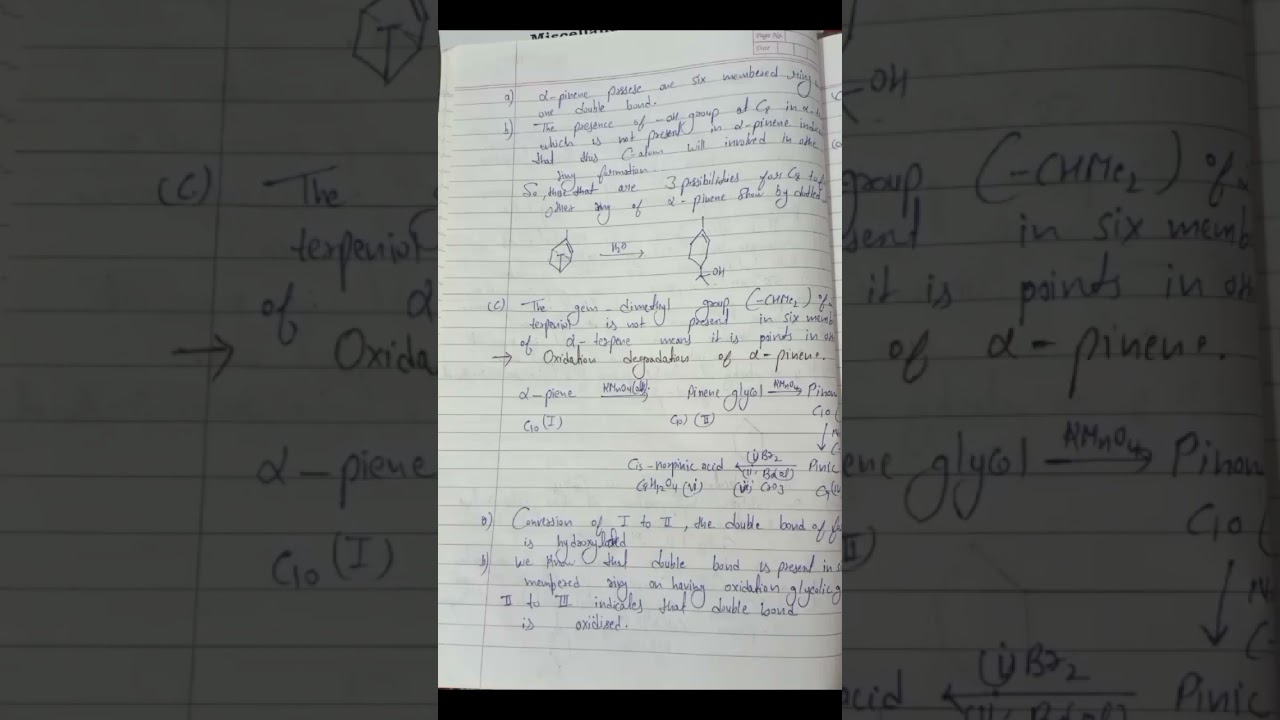 Page No.
Date
a) α-pinene possese one six membered ring
one double bond.
b) The presence of -OH group at C8 in α-
which is not present in α-pinene
that this C-atom will involved in othe
ring formation.
So, that are 3 possibilities for C8 to
other ring of α-pinene show by dotted
H2O
-OH
(C) The gem-dimethyl group (-CHMe2) of
terpeniol is not present in six memb
of α-terpene means it is points in
→ Oxidation degradation of α-pinene.
α-piene KMnO4 Pinene glycol KMnO4 Pinon
C10 (I) C10 (II) C10 (
Cis-norpinic acid (i) Br2 Pinic
C8H12O4 (vi) (iii) CrO3
a) Conversion of I to II, the double bond of
is hydroxylated
b) We know that double bond is present in
membered ring on having oxidation glycolic
II to III indicates that double bond
is oxidised.